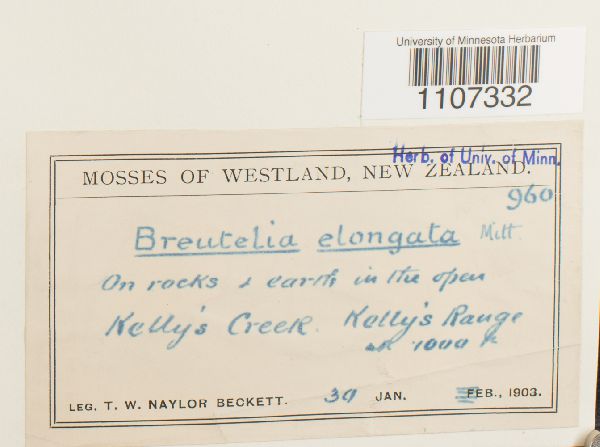 University of Minnesota Herbarium
1107332
Herb. of Univ. of Minn.
MOSSES OF WESTLAND, NEW ZEALAND.
960
Breutelia elongata Mitt.
On rocks & earth, in the open
Kelly's Creek. Kelly's Range
1000
LEG. T. W. NAYLOR BECKETT. 30 JAN. FEB., 1903.